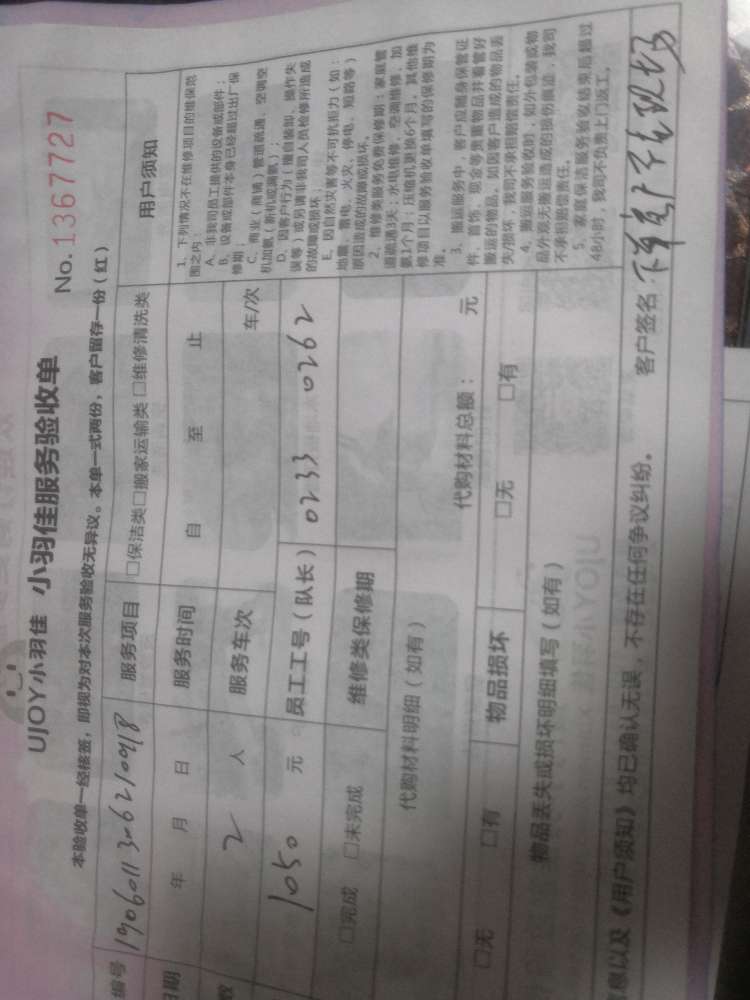 UJOY小羽佳 小羽佳服务验收单
No.1367727
本验收单一经核签，即视为对本次服务验收无异议。本单一式两份，客户留存一份（红）
编号 服务项目 □保洁类□搬家运输类□维修清洗类
日期 年 月 日 服务时间 自 至 止
数 2 人 服务车次 车/次
1050 元 员工工号（队长） 0233 0262
□完成 □未完成 维修类保修期
代购材料明细（如有） 代购材料总额： 元
□无 □有 物品损坏 □无 □有
物品丢失或损坏明细填写（如有）
用户须知
1、下列情况不在维修项目的维保范
围之内：
A、非我司员工提供的设备或部件；
B、设备或部件本身已经超过出厂保
修期；
C、商业（商铺）管道疏通、空调空
机加氨（新机或漏氨）；
D、因客户行为（擅自装卸、操作失
误等）或另请非我司人员检修所造成
的故障或损坏；
E、因自然灾害等不可抗拒力（如：
地震、雷电、火灾、停电、短路等）
原因造成的故障或损坏。
2、维修类服务免费保修期：家庭管
道疏通3天；水电维修、空调维修、加
氨1个月；压缩机更换6个月，其他维
修项目以服务验收单填写的保修期为
准。
3、搬运服务中，客户应随身保管证
件、首饰、现金等贵重物品并看管好
搬运的物品，如因客户造成的物品丢
失/损坏，我司不承担赔偿责任。
4、搬运服务验收时，如外包装或物
品外观无搬运造成的损伤痕迹，我司
不承担赔偿责任。
5、家庭保洁服务验收结束后超过
48小时，我司不负责上门返工。
息以及《用户须知》均已确认无误，不存在任何争议纠纷。 客户签名：下单客户不在现场